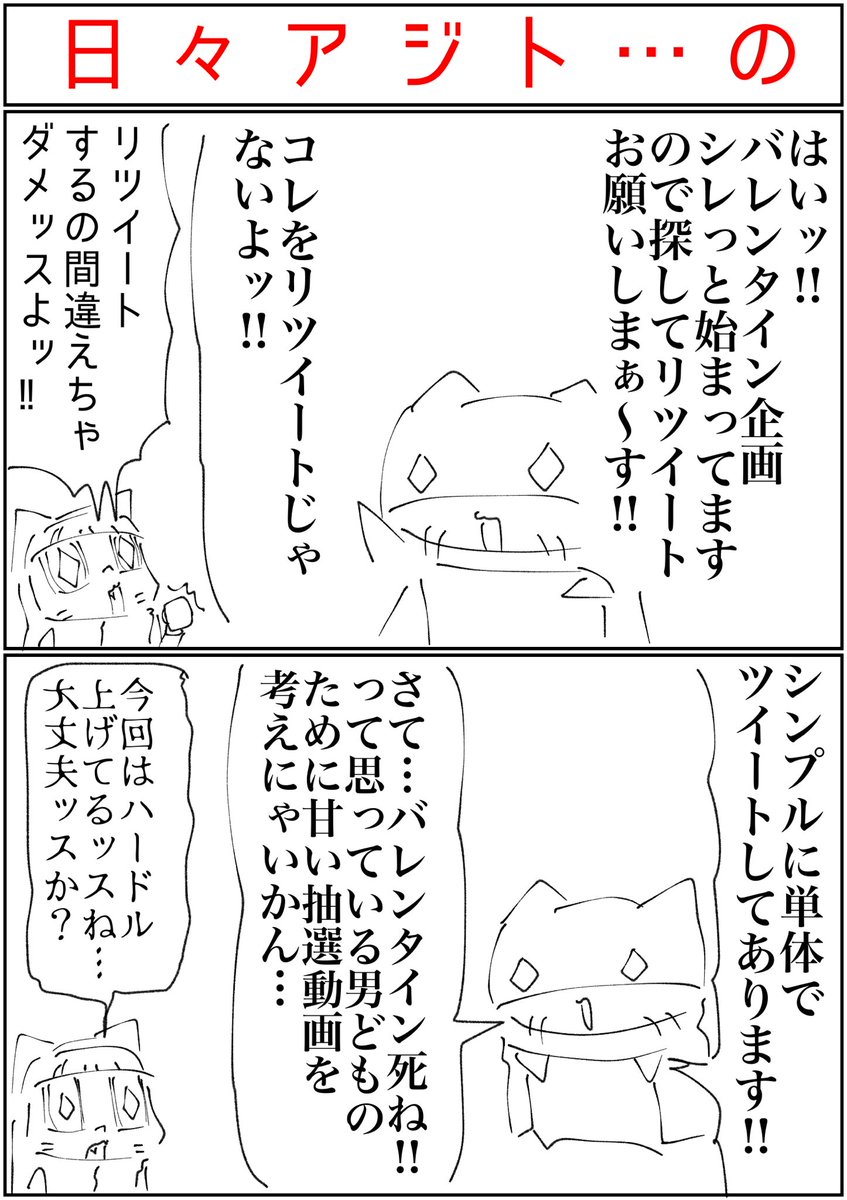 日々アジト…の
はいッ!!
バレンタイン企画
シレっと始まってます
ので探してリツイート
お願いしまぁ～す!!
コレをリツイートじゃ
ないよッ!!
リツイート
するの間違えちゃ
ダメッスよッ!!
シンプルに単体で
ツイートしてあります!!
さて…バレンタイン死ね!!
って思っている男どもの
ために甘い抽選動画を
考えにゃいかん…
今回はハードル
上げてるッスね…
大丈夫ッスか?